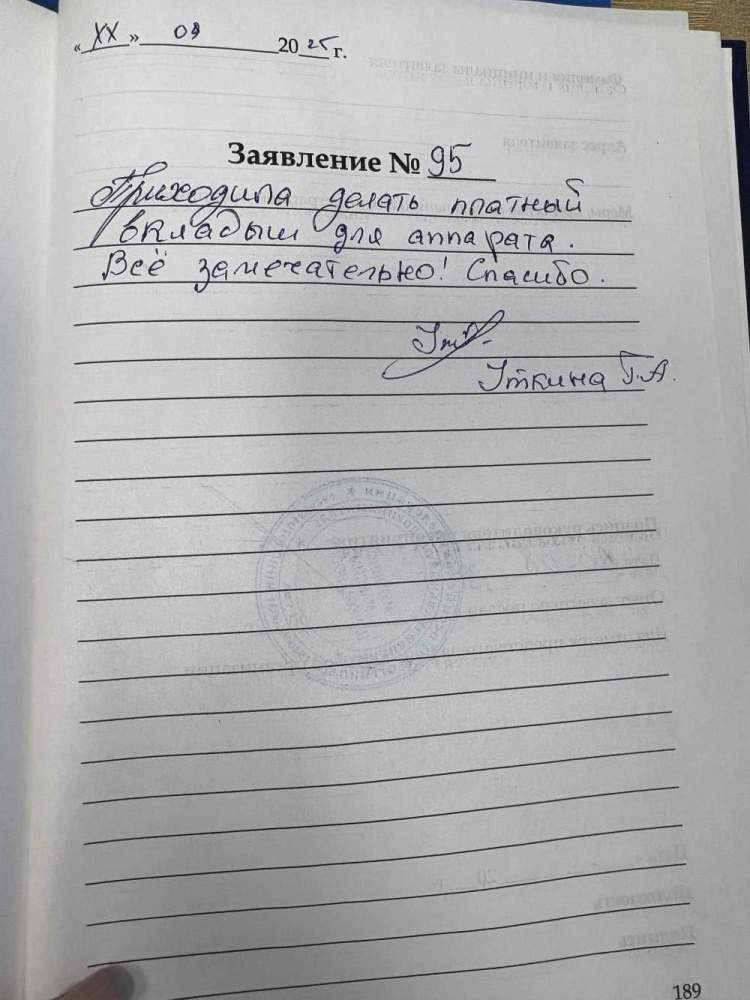 «XX» 09 2025 г.
Заявление № 95
Приходила делать платный
вкладыш для аппарата.
Всё замечательно! Спасибо.
Уткина Г.А.
189